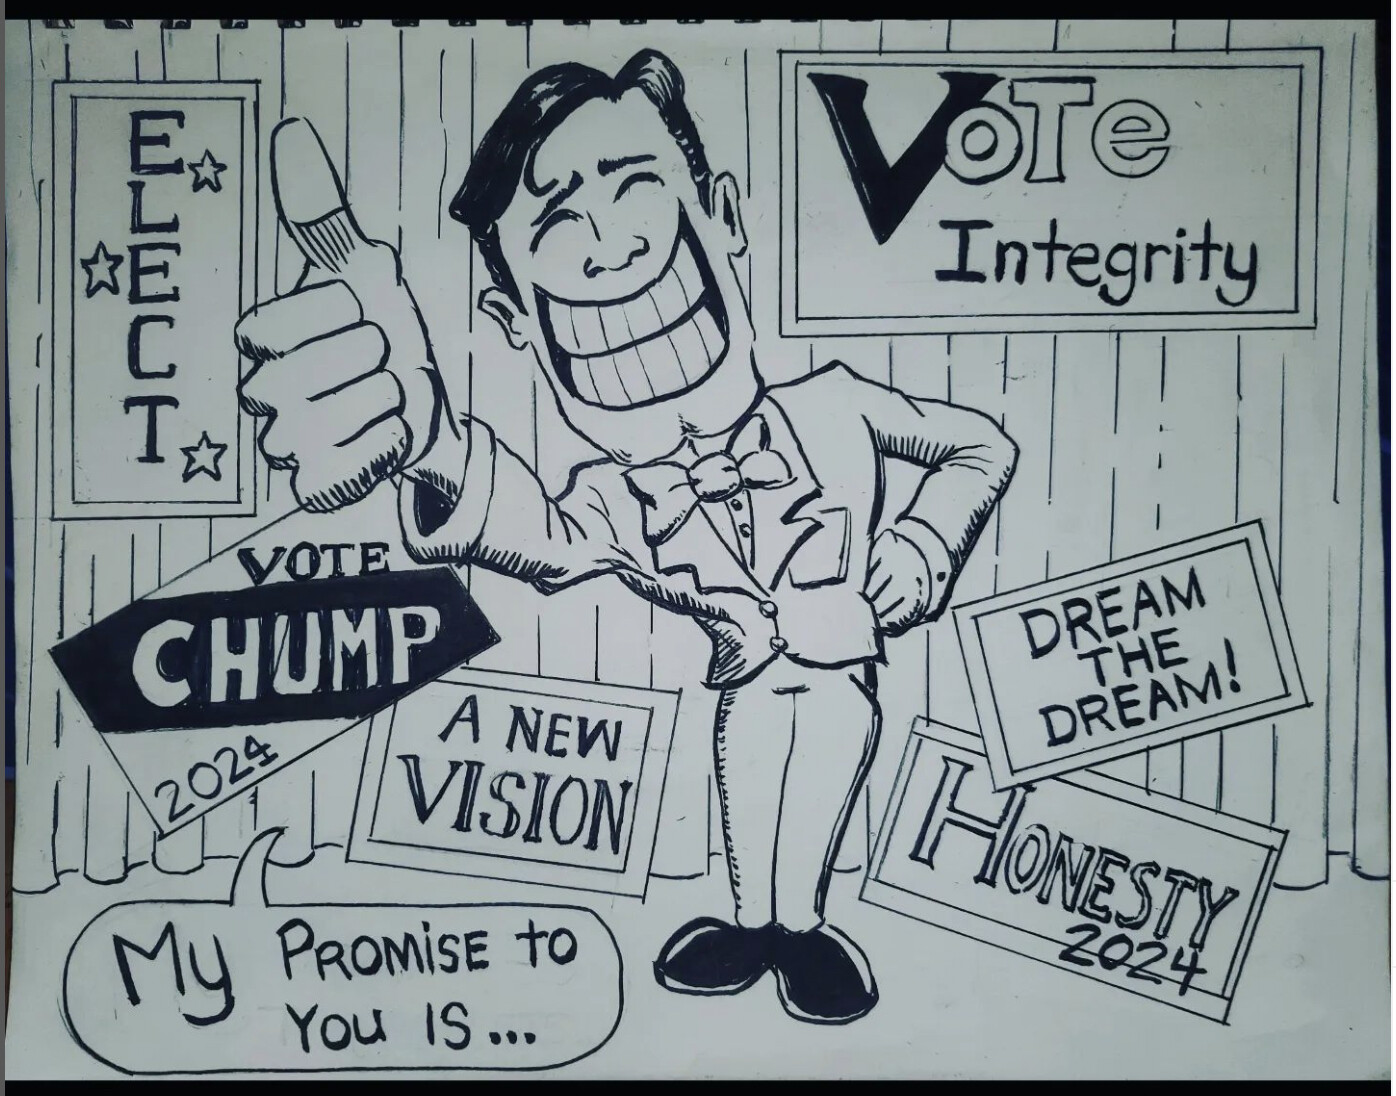 ELECT
VOTE
Integrity
VOTE
CHUMP
2024
A NEW
VISION
DREAM
THE
DREAM!
HONESTY
2024
My PROMISE to
YOU IS...